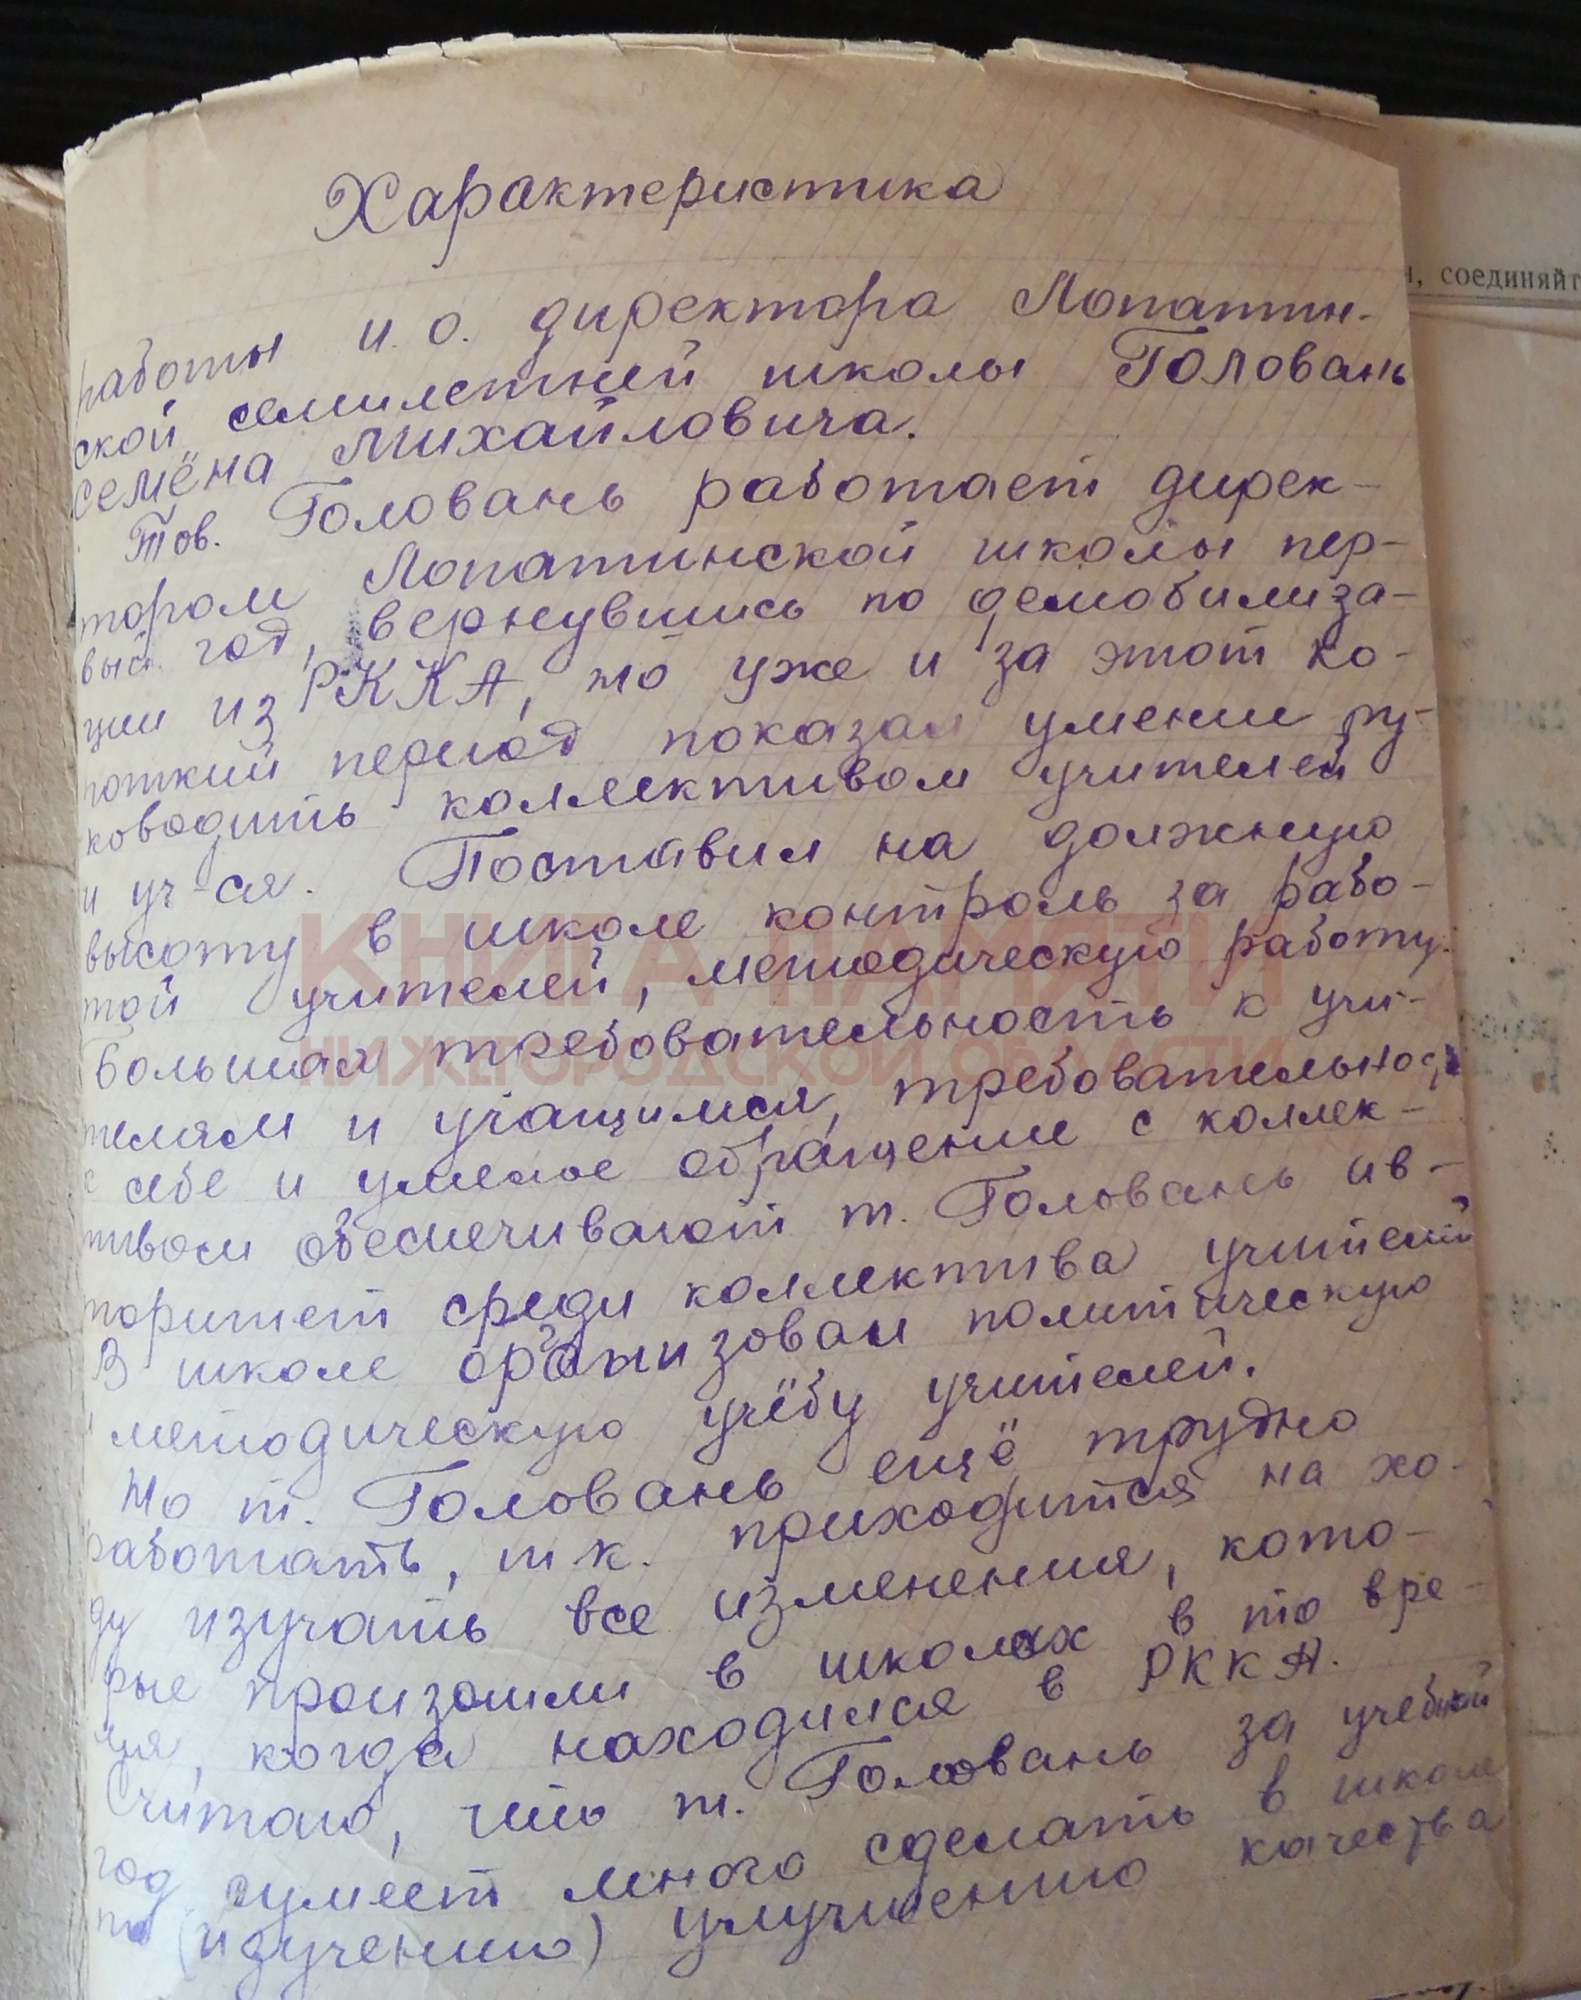 Характеристика
работы и. о. директора Лопатин-
ской семилетней школы Головань
Семёна Михайловича.
Тов. Головань работает дирек-
тором Лопатинской школы пер-
вый год, вернувшись по демобилиза-
ции из РККА, но уже и за этот ко-
роткий период показал умение ру-
ководить коллективом учителей
и уч-ся. Поставил на должную
высоту в школе контроль за рабо-
той учителей, методическую работу.
Большая требовательность к учи-
телям и учащимся, требовательнос
к себе и умелое обращение с коллек-
тивом обеспечивают т. Головань ав-
торитет среди коллектива учителей
В школе организовал политическую
и методическую учёбу учителей.
Но т. Головань ещё трудно
работать, т.к. приходится на хо-
ду изучать все изменения, кото-
рые произошли в школах в то вре-
мя, когда находился в РККА.
Считаю, что т. Головань за учебный
год сумеет много сделать в школе
по (изучению) улучшению качества
КНИГА ПАМЯТИ
НИЖЕГОРОДСКОЙ ОБЛАСТИ
, соединяйт